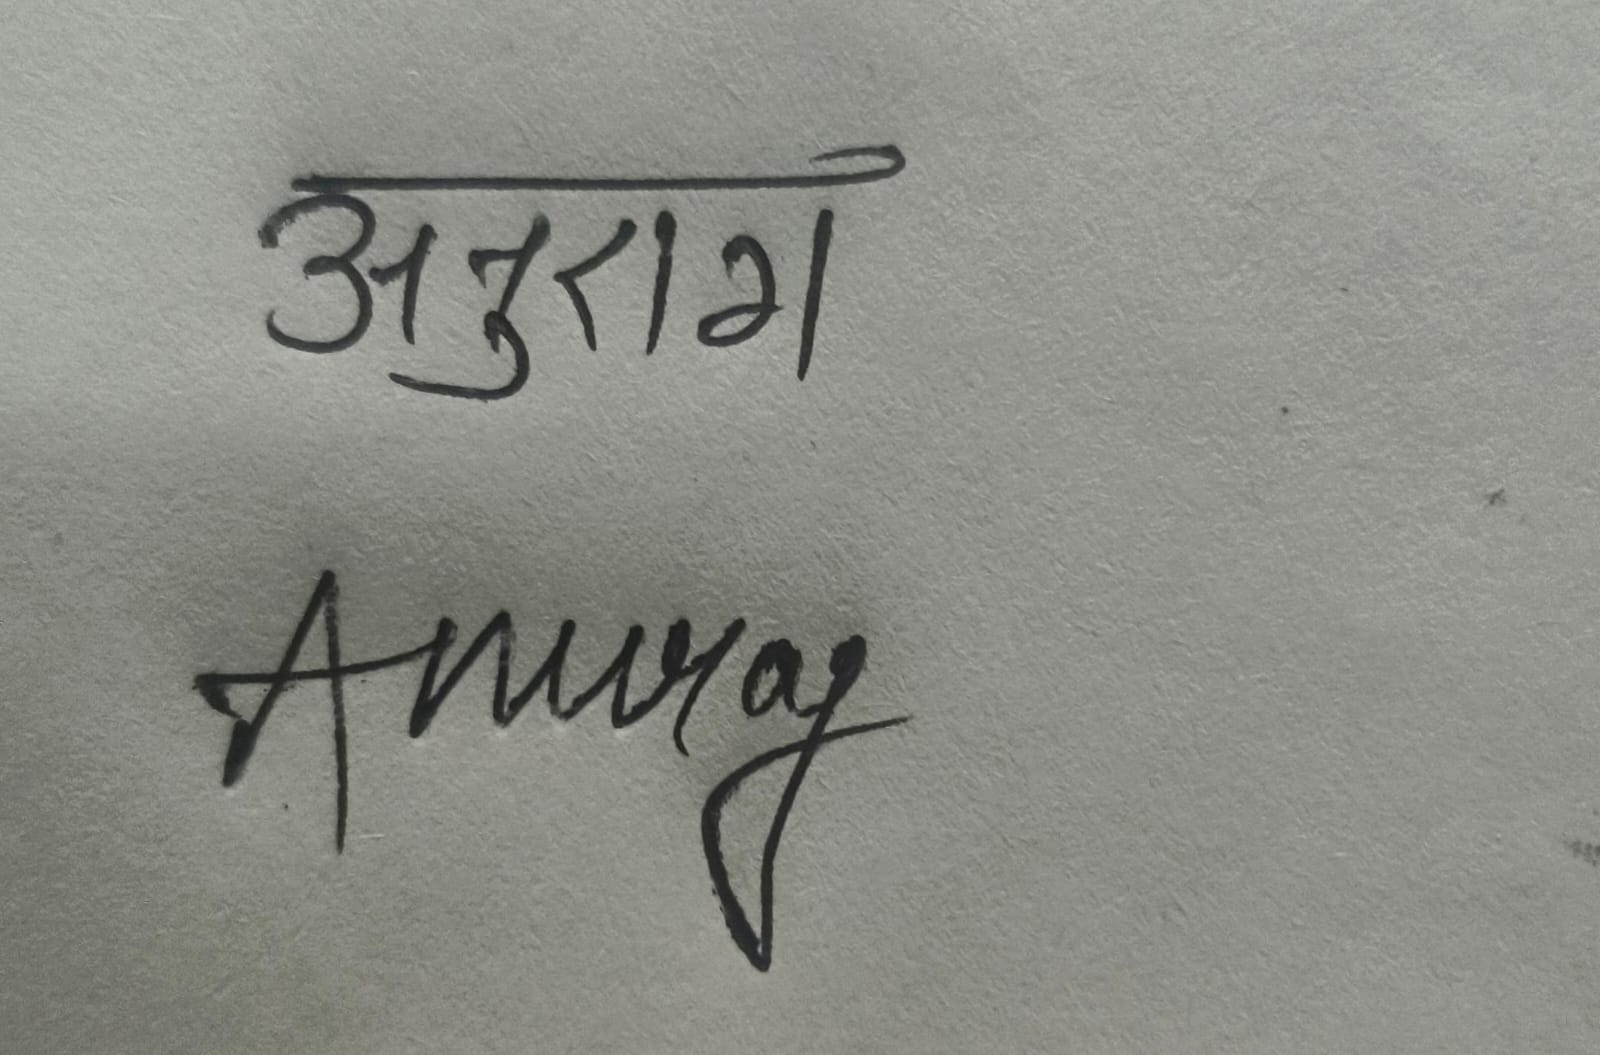 अनुराग
Anurag